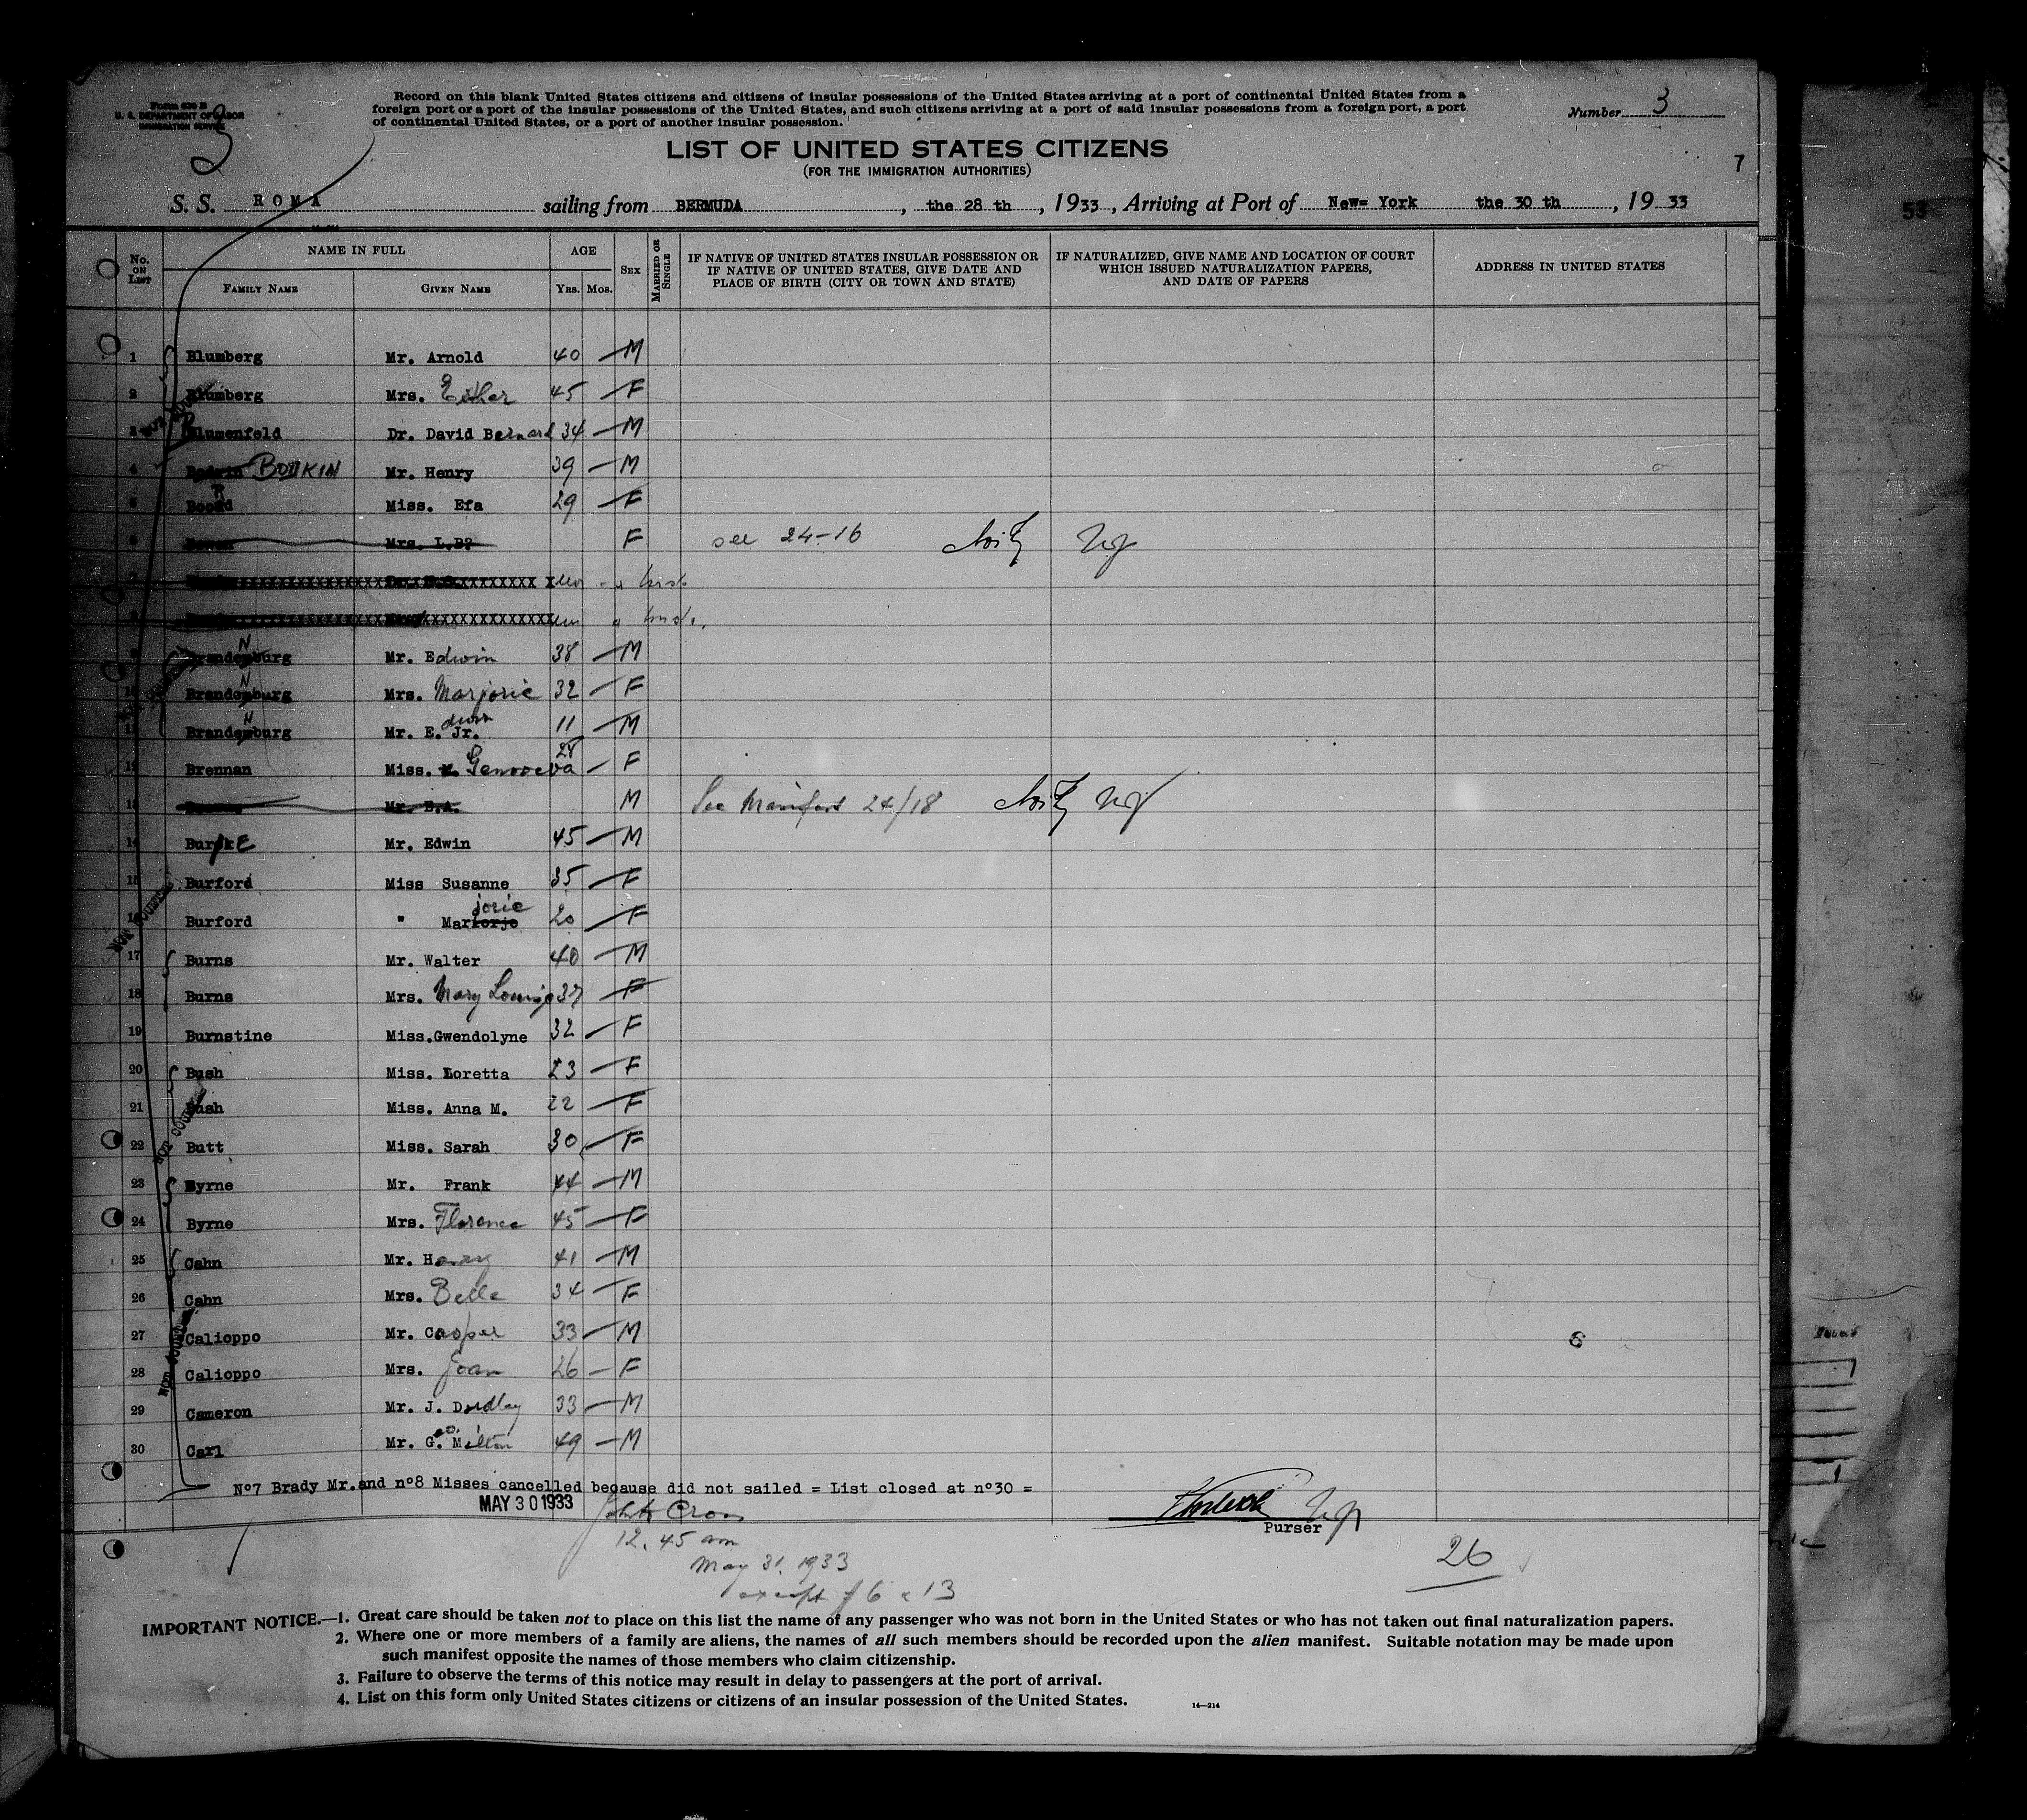 Form 630 B
U. S. DEPARTMENT OF LABOR
IMMIGRATION SERVICE
3
Record on this blank United States citizens and citizens of insular possessions of the United States arriving at a port of continental United States from a
foreign port or a port of the insular possessions of the United States, and such citizens arriving at a port of said insular possessions from a foreign port, a port
of continental United States, or a port of another insular possession.
Number 3
LIST OF UNITED STATES CITIZENS
(FOR THE IMMIGRATION AUTHORITIES)
7
S. S. ROMA sailing from BERMUDA, the 28 th, 1933, Arriving at Port of New= York the 30 th, 19 33
53
No. ON LIST NAME IN FULL AGE SEX MARRIED OR SINGLE IF NATIVE OF UNITED STATES INSULAR POSSESSION OR IF NATIVE OF UNITED STATES, GIVE DATE AND PLACE OF BIRTH (CITY OR TOWN AND STATE) IF NATURALIZED, GIVE NAME AND LOCATION OF COURT WHICH ISSUED NATURALIZATION PAPERS, AND DATE OF PAPERS ADDRESS IN UNITED STATES
FAMILY NAME GIVEN NAME YRS. MOS.
1 Blumberg Mr. Arnold 40 — M
2 Blumberg Mrs. Esther 45 — F
3 Blumenfeld Dr. David Bernard 34 — M
4 BODKIN Mr. Henry 39 — M
5 Miss. Efa 29 — F
6 Mrs. L.B? F see 24-16
7
8
9 Brandenburg Mr. Edwin 38 — M
10 Brandenburg Mrs. Marjorie 32 — F
11 Brandenburg Mr. Edwin Jr. 11 — M
12 Brennan Miss. Genevieva 28 — F
13 Mr. B.A. M See Manifest 24/18
14 Burke Mr. Edwin 45 — M
15 Burford Miss Susanne 35 — F
16 Burford " Marjorie 20 — F
17 Burns Mr. Walter 40 — M
18 Burns Mrs. Mary Louise 37 — F
19 Burnstine Miss.Gwendolyne 32 — F
20 Bush Miss. Loretta 23 — F
21 Bush Miss. Anna M. 22 — F
22 Butt Miss. Sarah 30 — F
23 Byrne Mr. Frank 44 — M
24 Byrne Mrs. Florence 45 — F
25 Cahn Mr. Harry 41 — M
26 Cahn Mrs. Belle 34 — F
27 Calioppo Mr. Casper 33 — M
28 Calioppo Mrs. Joan 26 — F
29 Cameron Mr. J. Dudley 33 — M
30 Carl Mr. Geo. Milton 49 — M
N°7 Brady Mr.and n°8 Misses cancelled because did not sailed = List closed at n°30 =
MAY 30 1933
Purser
12.45 am
May 31. 1933
except 6 13
26
IMPORTANT NOTICE.—1. Great care should be taken not to place on this list the name of any passenger who was not born in the United States or who has not taken out final naturalization papers.
2. Where one or more members of a family are aliens, the names of all such members should be recorded upon the alien manifest. Suitable notation may be made upon
such manifest opposite the names of those members who claim citizenship.
3. Failure to observe the terms of this notice may result in delay to passengers at the port of arrival.
4. List on this form only United States citizens or citizens of an insular possession of the United States.
14—214